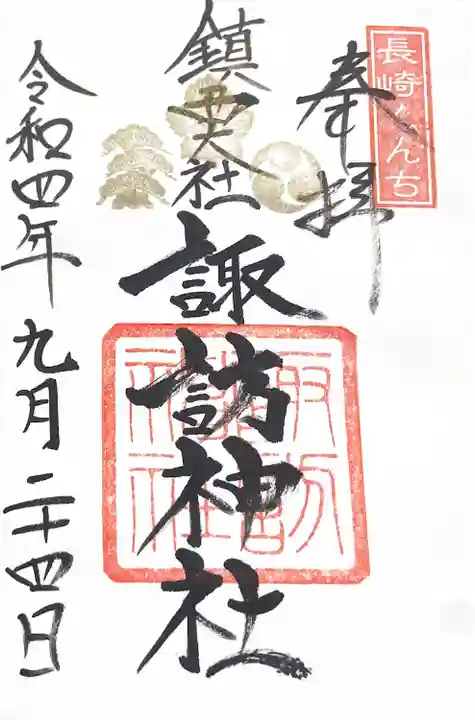 長崎くんち
奉拝
鎮西大社
諏訪神社
令和四年九月二十四日